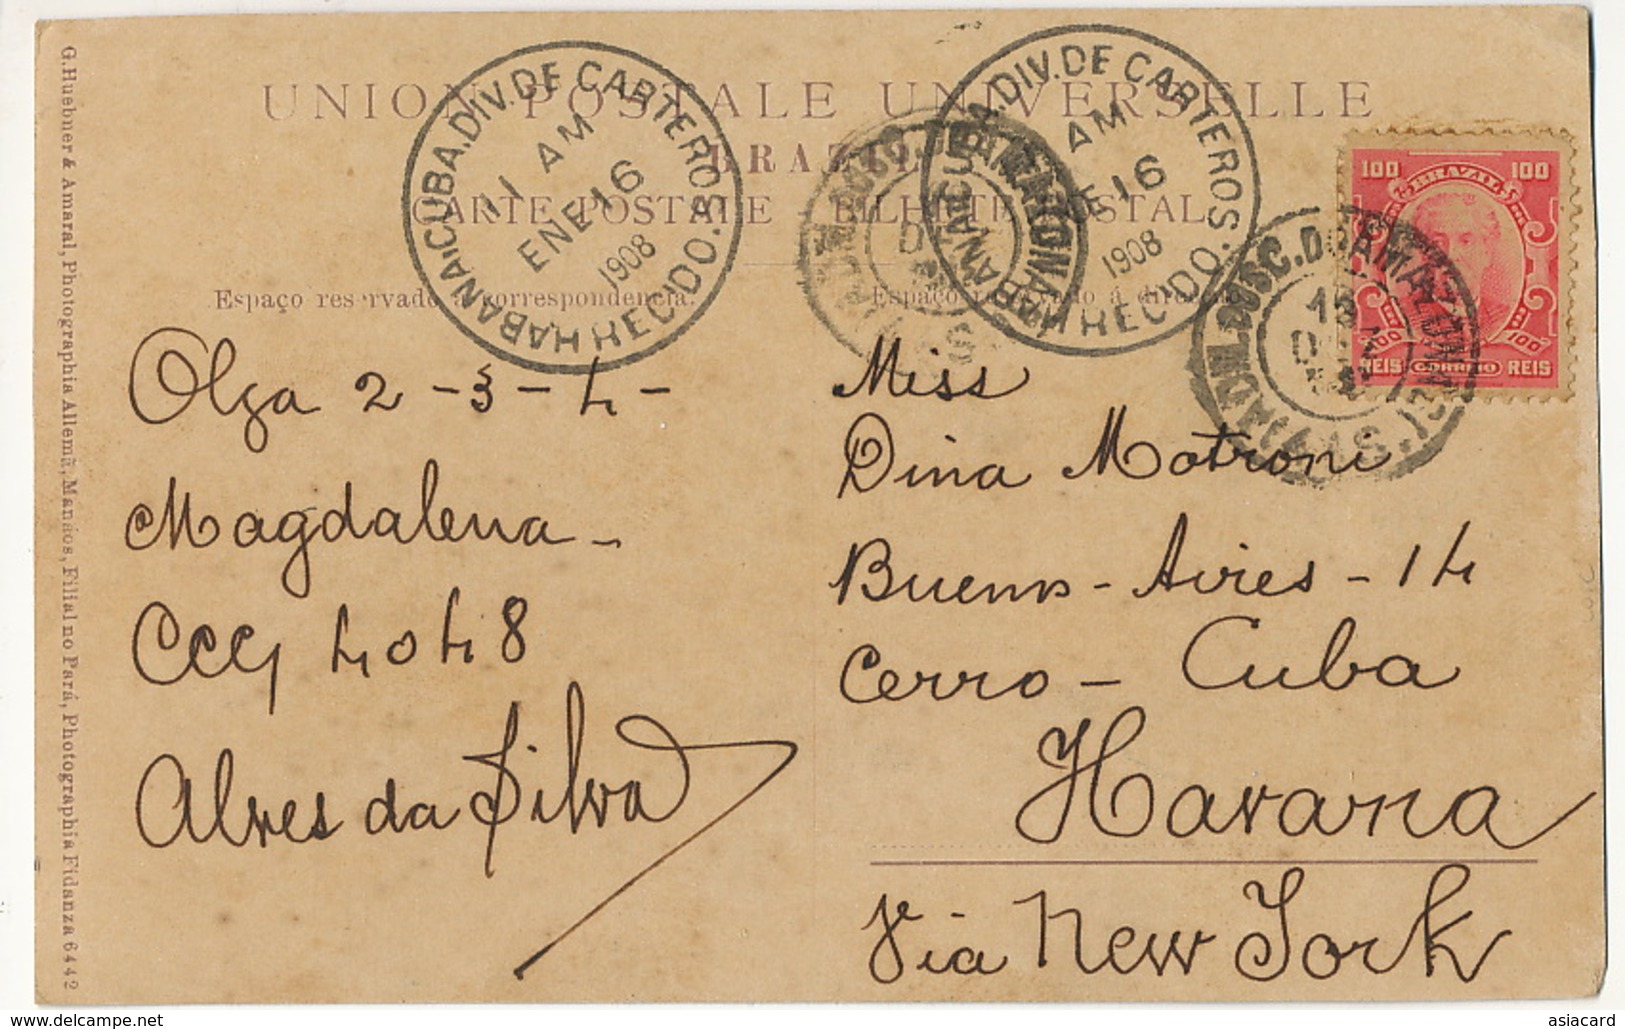 UNION POSTALE UNIVERSELLE
BRAZIL
CARTE POSTALE BILHETE POSTAL
Espaço reservado á correspondencia.
Espaço reservado á direcção
HABANA CUBA. DIV. DE CARTEROS.
11 AM
ENE 16
1908
RECIDO.
HABANA CUBA. DIV. DE CARTEROS.
AM
E 16
1908
RECIDO.
100 BRAZIL 100
100 100
REIS CORREIO REIS
Olga 2-3-4-
Magdalena-
CCCG 4048
Alves da Silva
Miss
Dina Motroni
Buenos-Aires-14
Cerro-Cuba
Havana
Via New York
G. Huebner & Amaral, Photographia Allemã, Manáos, Filial no Pará, Photographia Fidanza 6442
delcampe.net
asiacard